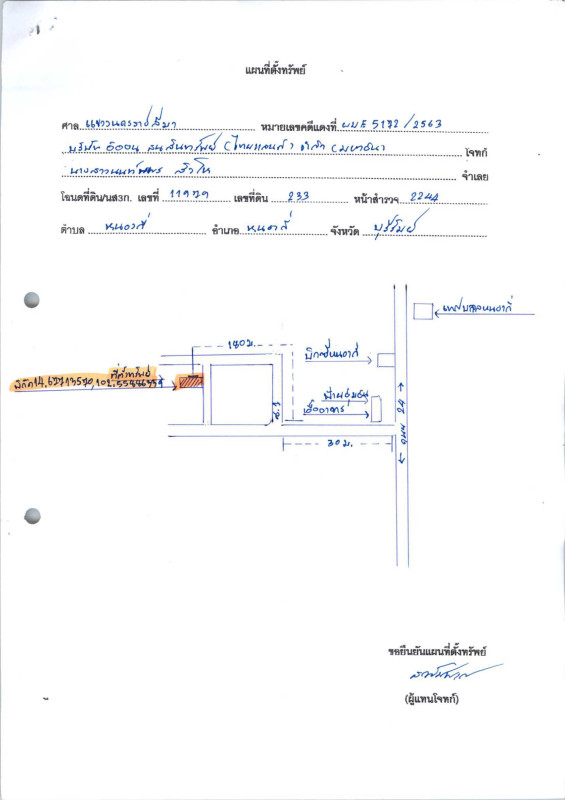 แผนที่ตั้งทรัพย์
ศาล แขวงนครราชสีมา หมายเลขคดีแดงที่ ผบE 5172/2563
บริษัท อิออน ธนสินทรัพย์ (ไทยแลนด์) จำกัด (มหาชน) โจทก์
นางสาวนนท์พร จำเลย
โฉนดที่ดิน/นส3ก. เลขที่ 11979 เลขที่ดิน 233 หน้าสำรวจ 2244
ตำบล หนองกี่ อำเภอ หนองกี่ จังหวัด บุรีรัมย์
เทศบาลหนองกี่
180 ม.
บิ๊กซีหนองกี่
ที่ตั้งทรัพย์
พิกัด 14.
ร้านชุมชน
เอื้ออาทร
ถนน 24
30 ม.
ขอยืนยันแผนที่ตั้งทรัพย์
(ผู้แทนโจทก์)